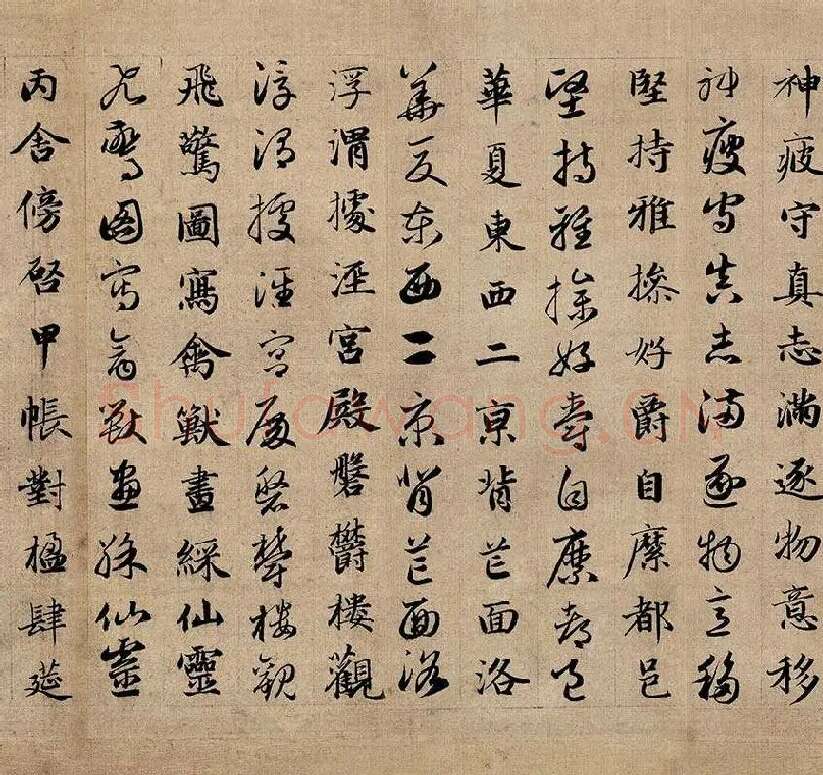 神疲守真志滿逐物意移
神疲守真志滿逐物意移
堅持雅操好爵自縻都邑
堅持雅操好爵自縻都邑
華夏東西二亰背芒面洛
華夏東西二京背芒面洛
浮渭據涇宮殿磐欝樓觀
浮渭據涇宮殿磐欝樓觀
飛驚圖寫禽獸畫綵仙靈
飛驚圖寫禽獸畫綵仙靈
丙舍傍啓甲帳對楹肆筵
Shufawang.CN